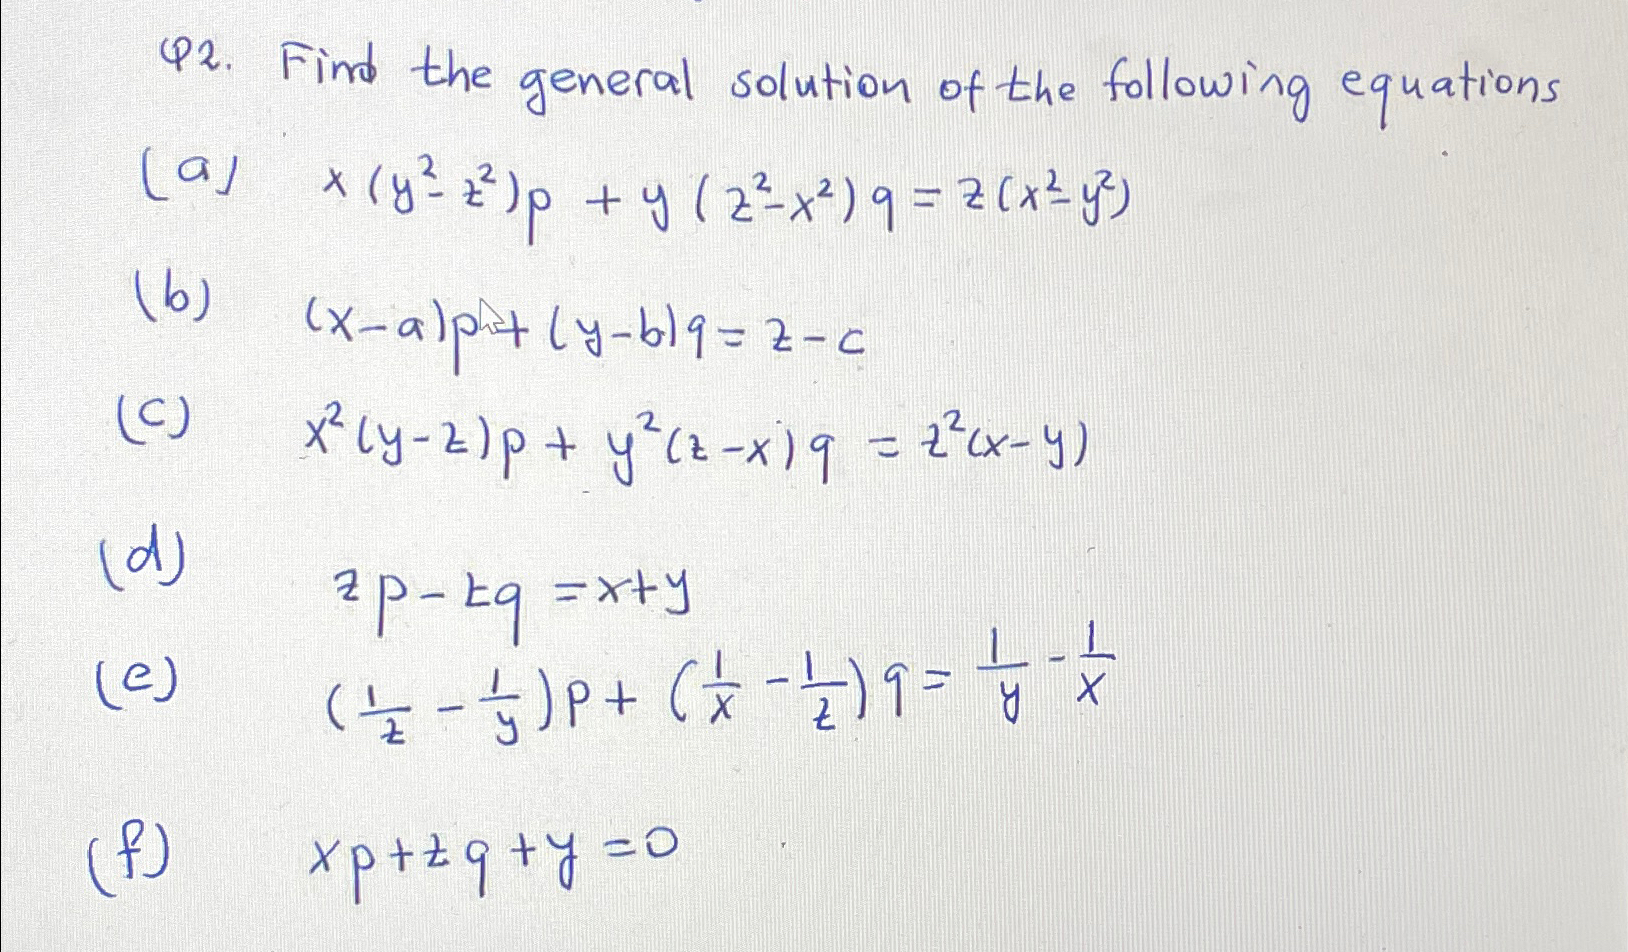 Q2. Find the general solution of the following equations
(a) x(y²-z²)p + y(z²-x²)q = z(x²-y²)
(b) (x-a)p + (y-b)q = z-c
(c) x²(y-z)p + y²(z-x)q = z²(x-y)
(d) zp - zq = x+y
(e) (1/z - 1/y)p + (1/x - 1/z)q = 1/y - 1/x
(f) xp + zq + y = 0